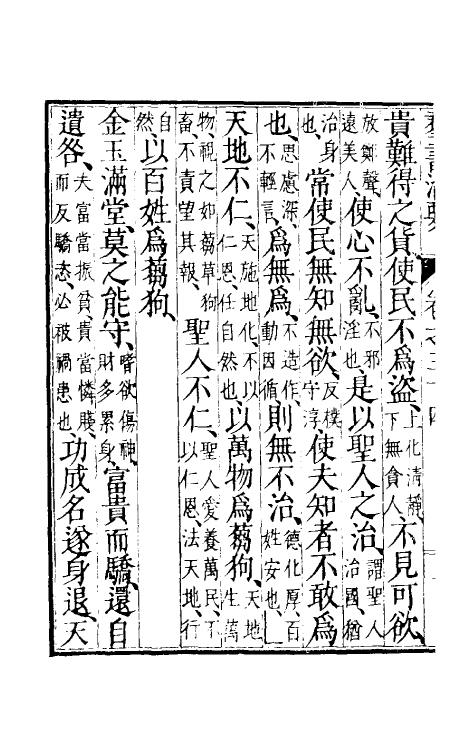 貴難得之貨使民不爲盜上化清靜下無貪人不見可欲
放鄭聲遠美人使心不亂不邪淫也是以聖人之治謂聖人治國猶
治身也常使民無知無欲反樸守淳使夫知者不敢爲
也思慮深不輕言爲無爲不造作動因循則無不治德化厚百姓安也
天地不仁天施地化不以仁恩任自然也以萬物爲芻狗天地生萬
物視之如芻草狗畜不責望其報聖人不仁聖人愛養萬民不以仁恩法天地行
自然以百姓爲芻狗
金玉滿堂莫之能守嗜欲傷神財多累身富貴而驕還自
遺咎夫富當振貧貴當憐賤而反驕恣必被禍患也功成名遂身退天